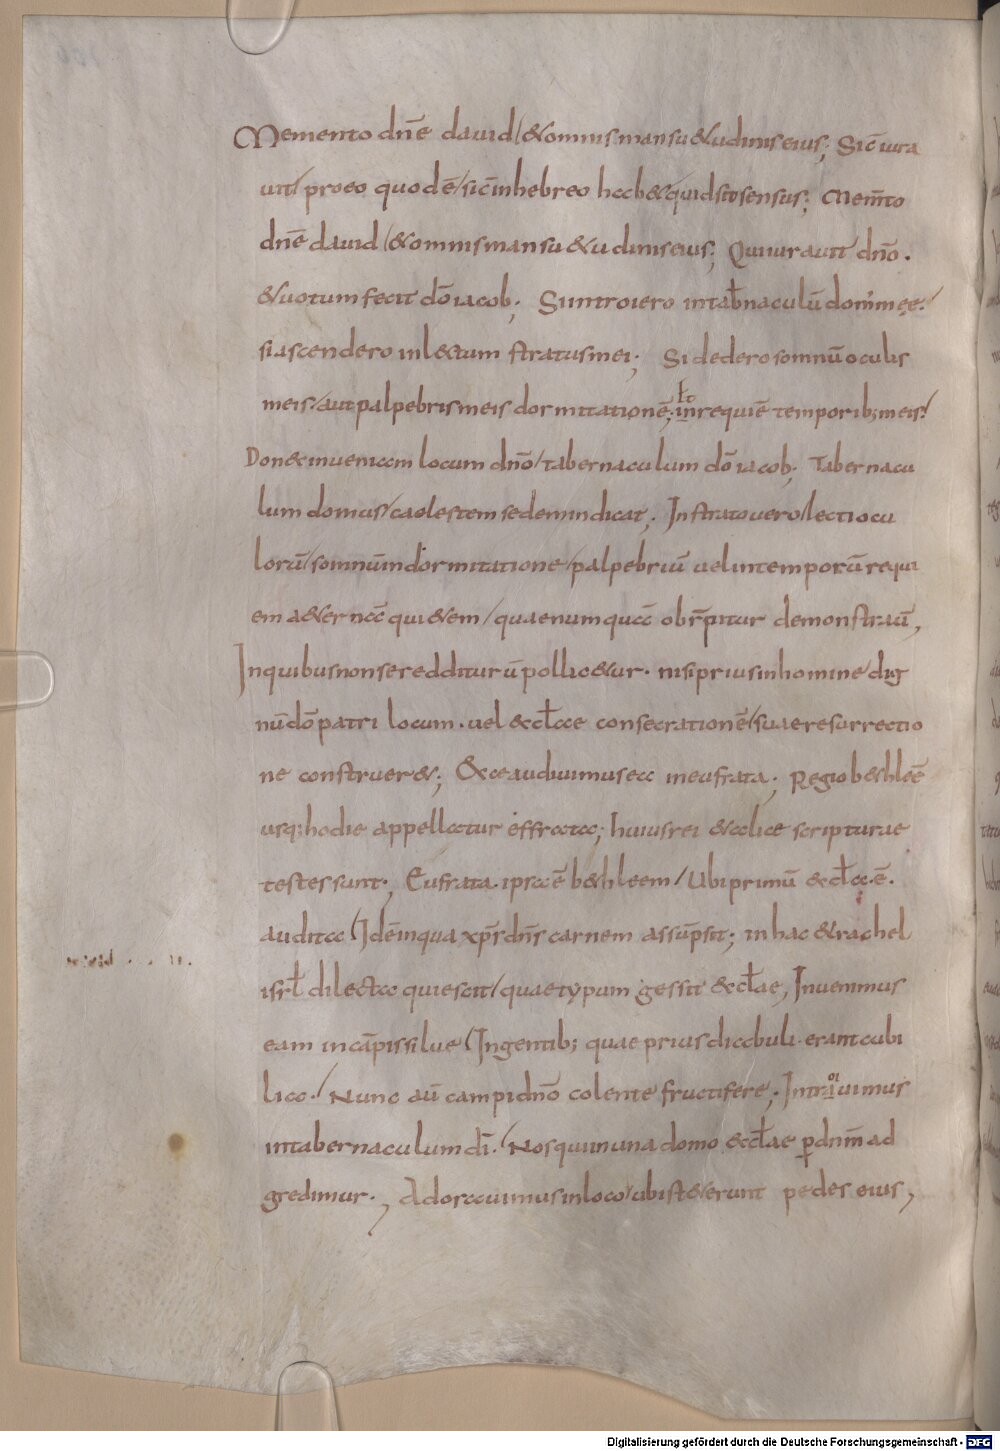 Memento dn̄e dauid / & omnis mansu&udinis eius; Sic̄ iura
uit / pro eo quod ē / sic̄ in hebreo hab& quid sit sensus; Mem̄to
dn̄e dauid / & omnis mansu&udinis eius; Qui iurauit dn̄o.
& uotum fecit dō iacob; Si introiero in tab̄naculū domus meę /
si ascendero in lectum stratus mei; Si dedero somnū oculis
meis / aut palpebris meis dormitationē; in requiē temporib; meis /
Donec inueniam locum dn̄o / tabernaculum dō iacob; Tabernacu
lum domus / caelestem sedem indicat; In strato uero / lecti ocu
lorū / somnū in dormitatione / palpebriū uel in temporū requi
em aeternā qui&em / quae numquā obr̄pitur demonstraū,
In quibus non se redditurū pollic&ur. nisi prius in homine dig
nū dō patri locum. uel eccl̄ae consecrationē / sua resurrectio
ne constru&; Ecce audiuimus ea in eufrata; Regio b&hleē
usq; hodie appellatur effrata; huius rei & aliae scripturae
testes sunt; Eufrata ipsa ē b&hleem / Ubi primū eccl̄a. ē.
audita / Idē in qua xp̄s dn̄s carnem assūpsit; in hac & rachel
isrl̄ dilecta quiescit / quae typum gessit eccl̄ae, Inuenimus
eam in cāpis siluę / In gentib; quae prius diabuli erant cubi
lia. / Nunc aū campi dn̄o colente fructifere; Introiuimus
in tabernaculum dī. / Nos qui in una domo eccl̄ae p dn̄m ad
gredimur., Adorauimus in loco / ubi st&erunt pedes eius,
Digitalisierung gefördert durch die Deutsche Forschungsgemeinschaft - DFG